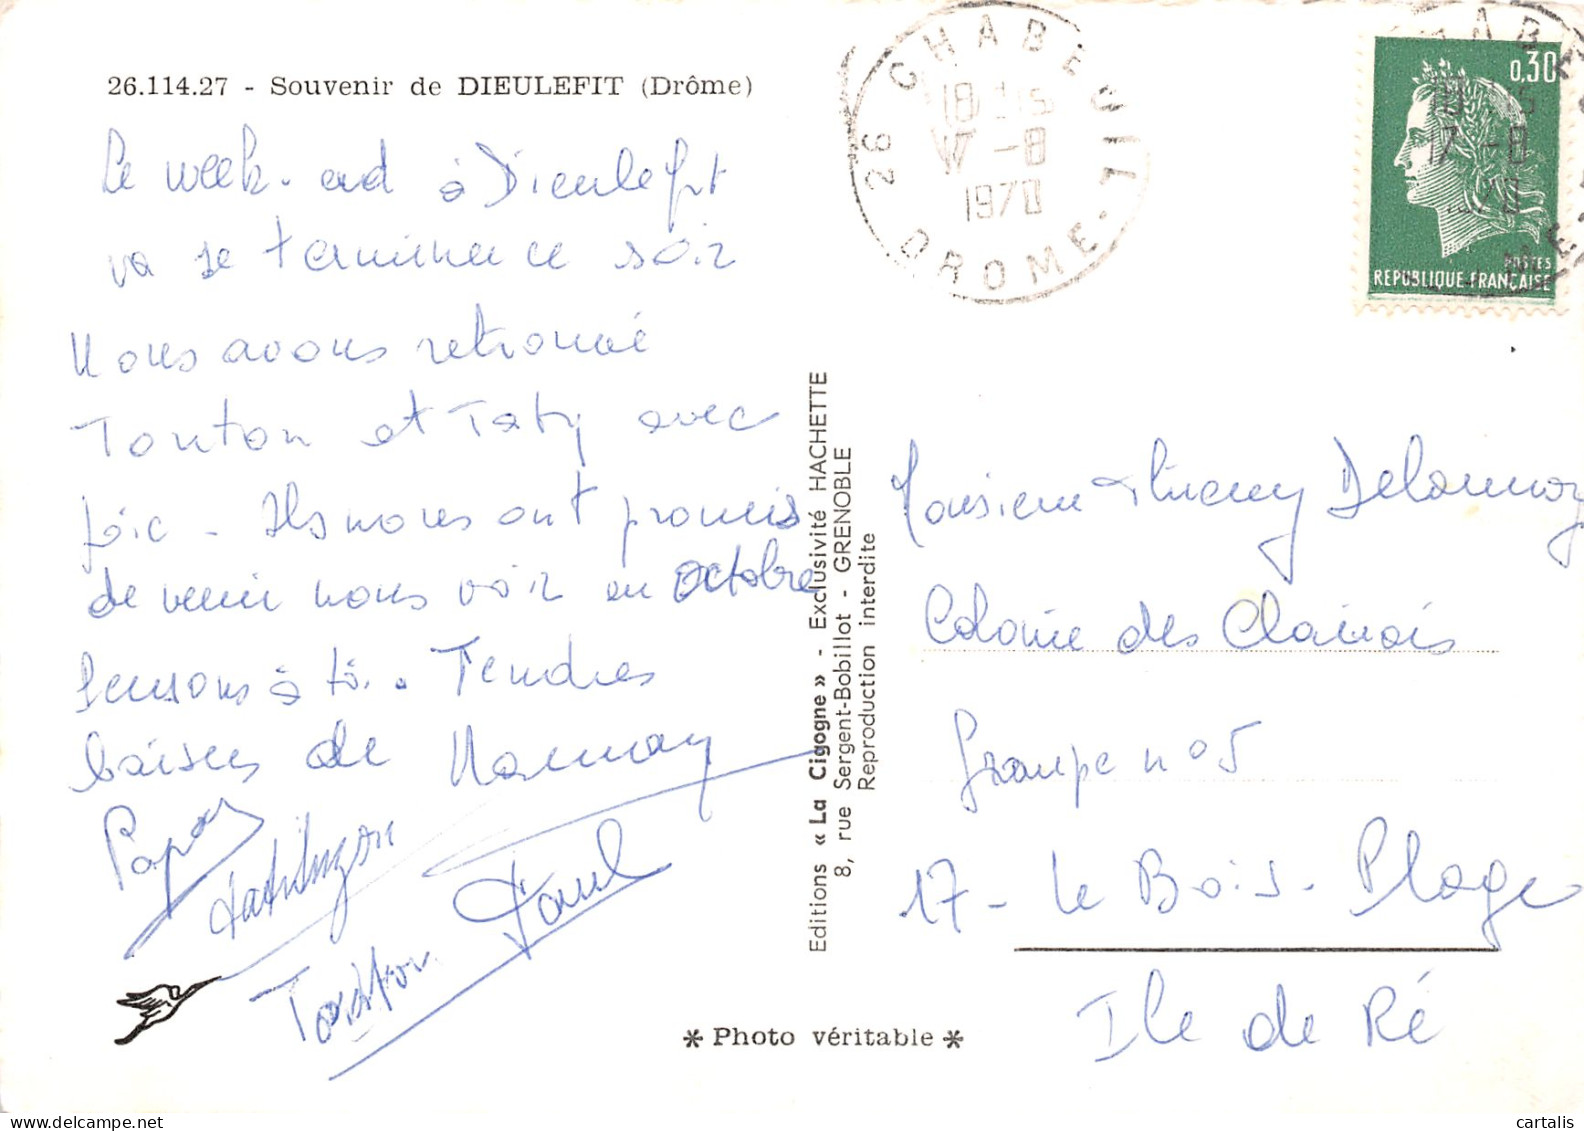 26.114.27 - Souvenir de DIEULEFIT (Drôme)
Le week-end à Dieulefit
va se terminer ce soir
Nous avons retrouvé
Tonton et Taty avec
joie - Ils nous ont promis
de venir nous voir en octobre
Pensons à toi. Tendres
baisers de Mamay
Papa
Tonton Paul
Editions « La Cigogne » - Exclusivité HACHETTE
8, rue Sergent-Bobillot - GRENOBLE
Reproduction interdite
* Photo véritable *
26 CHABEUIL
18 H 15
17 -8
1970
DROME
0,30
POSTES
REPUBLIQUE FRANÇAISE
18 15
17 -8
1970
Monsieur Thierry Delaunay
Colonie des
Groupe n° 5
17 - Le Bois-Plage
Ile de Ré
cartalis